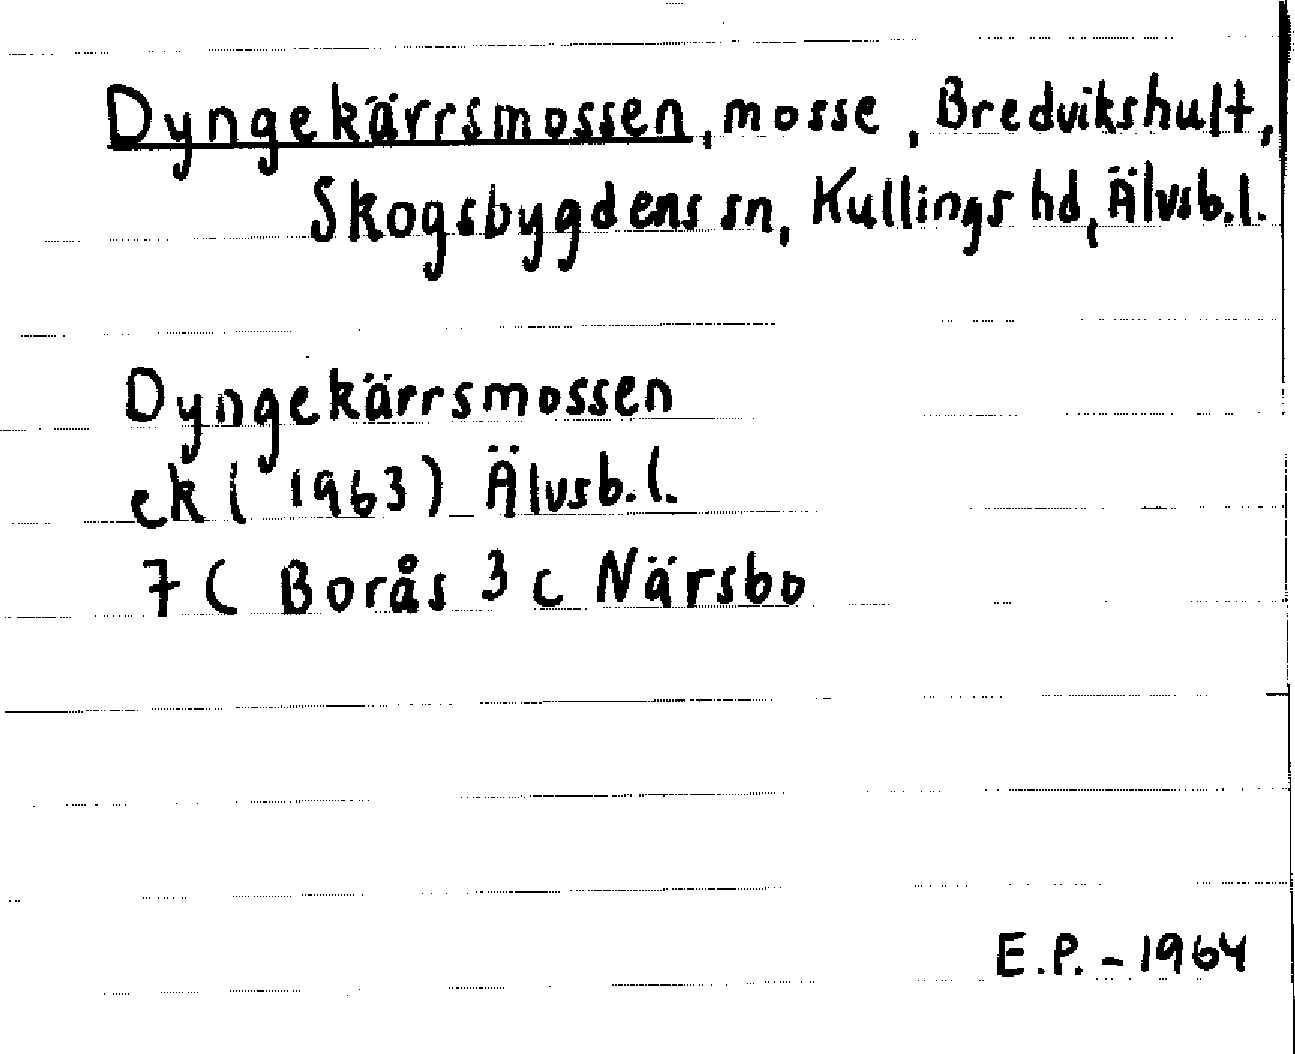 Dyngekärrsmossen, mosse, Bredvikshult,
Skogsbygdens sn, Kullings hd, Älvsb.l.
Dyngekärrsmossen
ek (1963) Älvsb.l.
7C Borås 3c Närsbo
E.P. - 1964